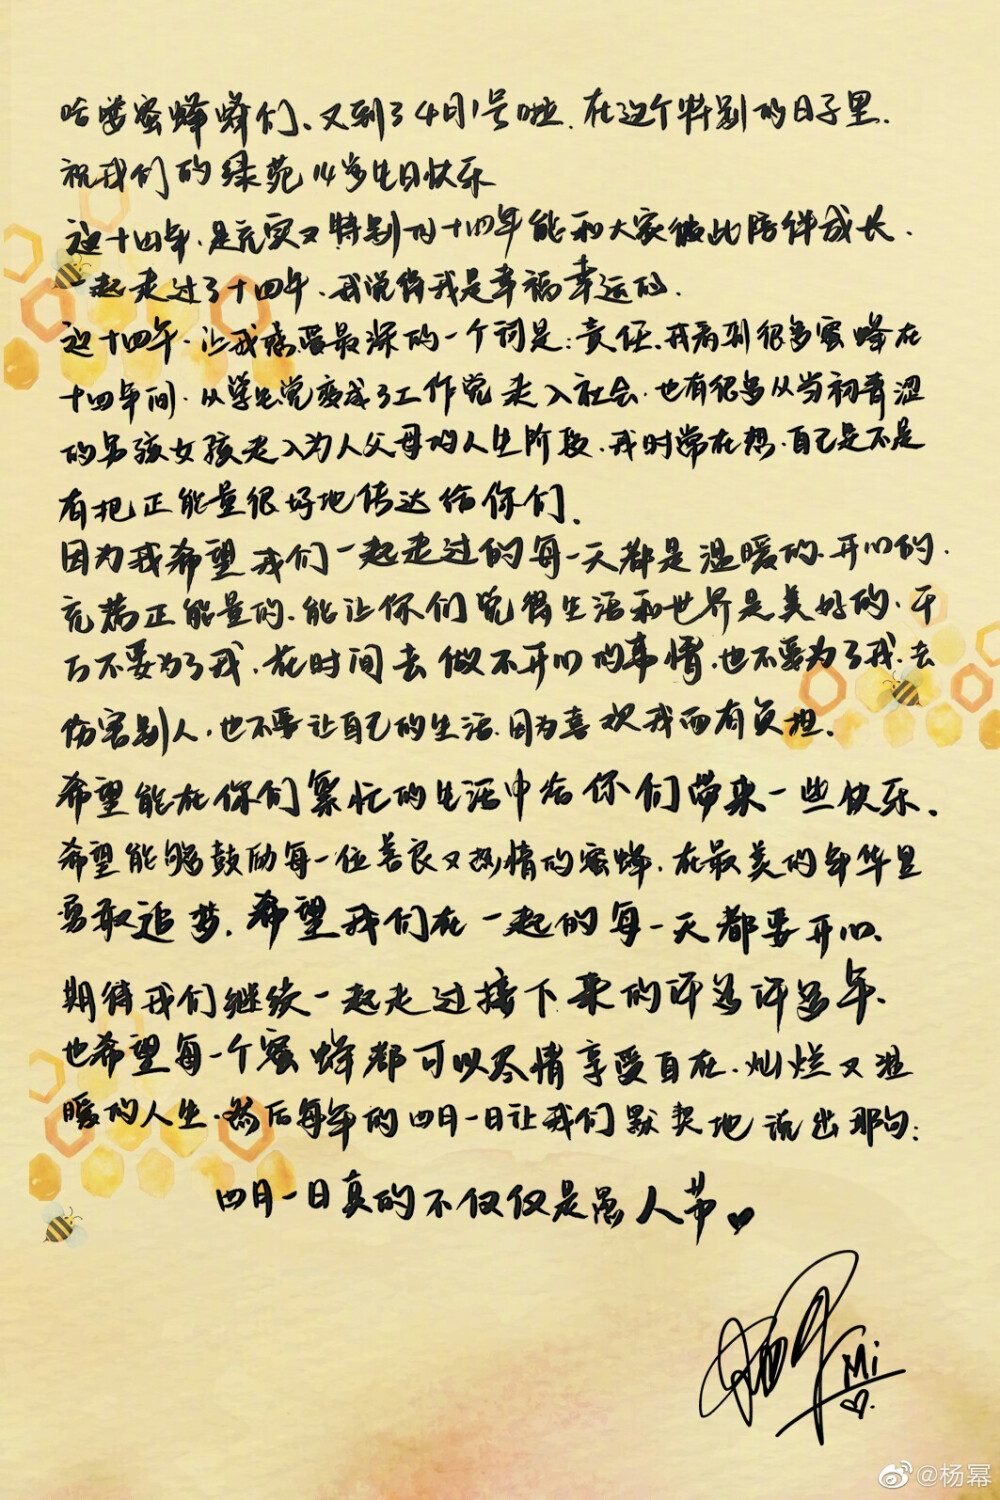 哈喽蜜蜂蜂们、又到了4月1号啦、在这个特别的日子里、
祝我们的绿苑14岁生日快乐
这十四年、是充实又特别的十四年能和大家彼此陪伴成长、
一起走过了十四年、我觉得我是幸福幸运的、
这十四年、让我感受最深的一个词是：责任、我看到很多蜜蜂在
十四年间、从学生党变成了工作党走入社会、也有很多从当初青涩
的男孩女孩走入为人父母的人生阶段、我时常在想、自己是不是
有把正能量很好地传达给你们、
因为我希望我们一起走过的每一天都是温暖的、开心的、
充满正能量的、能让你们觉得生活和世界是美好的、千
万不要为了我、花时间去做不开心的事情、也不要为了我、去
伤害别人、也不要让自己的生活、因为喜欢我而有负担、
希望能在你们繁忙的生活中给你们带来一些快乐、
希望能够鼓励每一位善良又热情的蜜蜂、在最美的年华里
勇敢追梦、希望我们在一起的每一天都要开心、
期待我们继续一起走过接下来的许多许多年、
也希望每一个蜜蜂都可以尽情享受自在、灿烂又温
暖的人生、然后每年的四月一日让我们默契地说出那句：
四月一日真的不仅仅是愚人节
杨幂 Mi
@杨幂